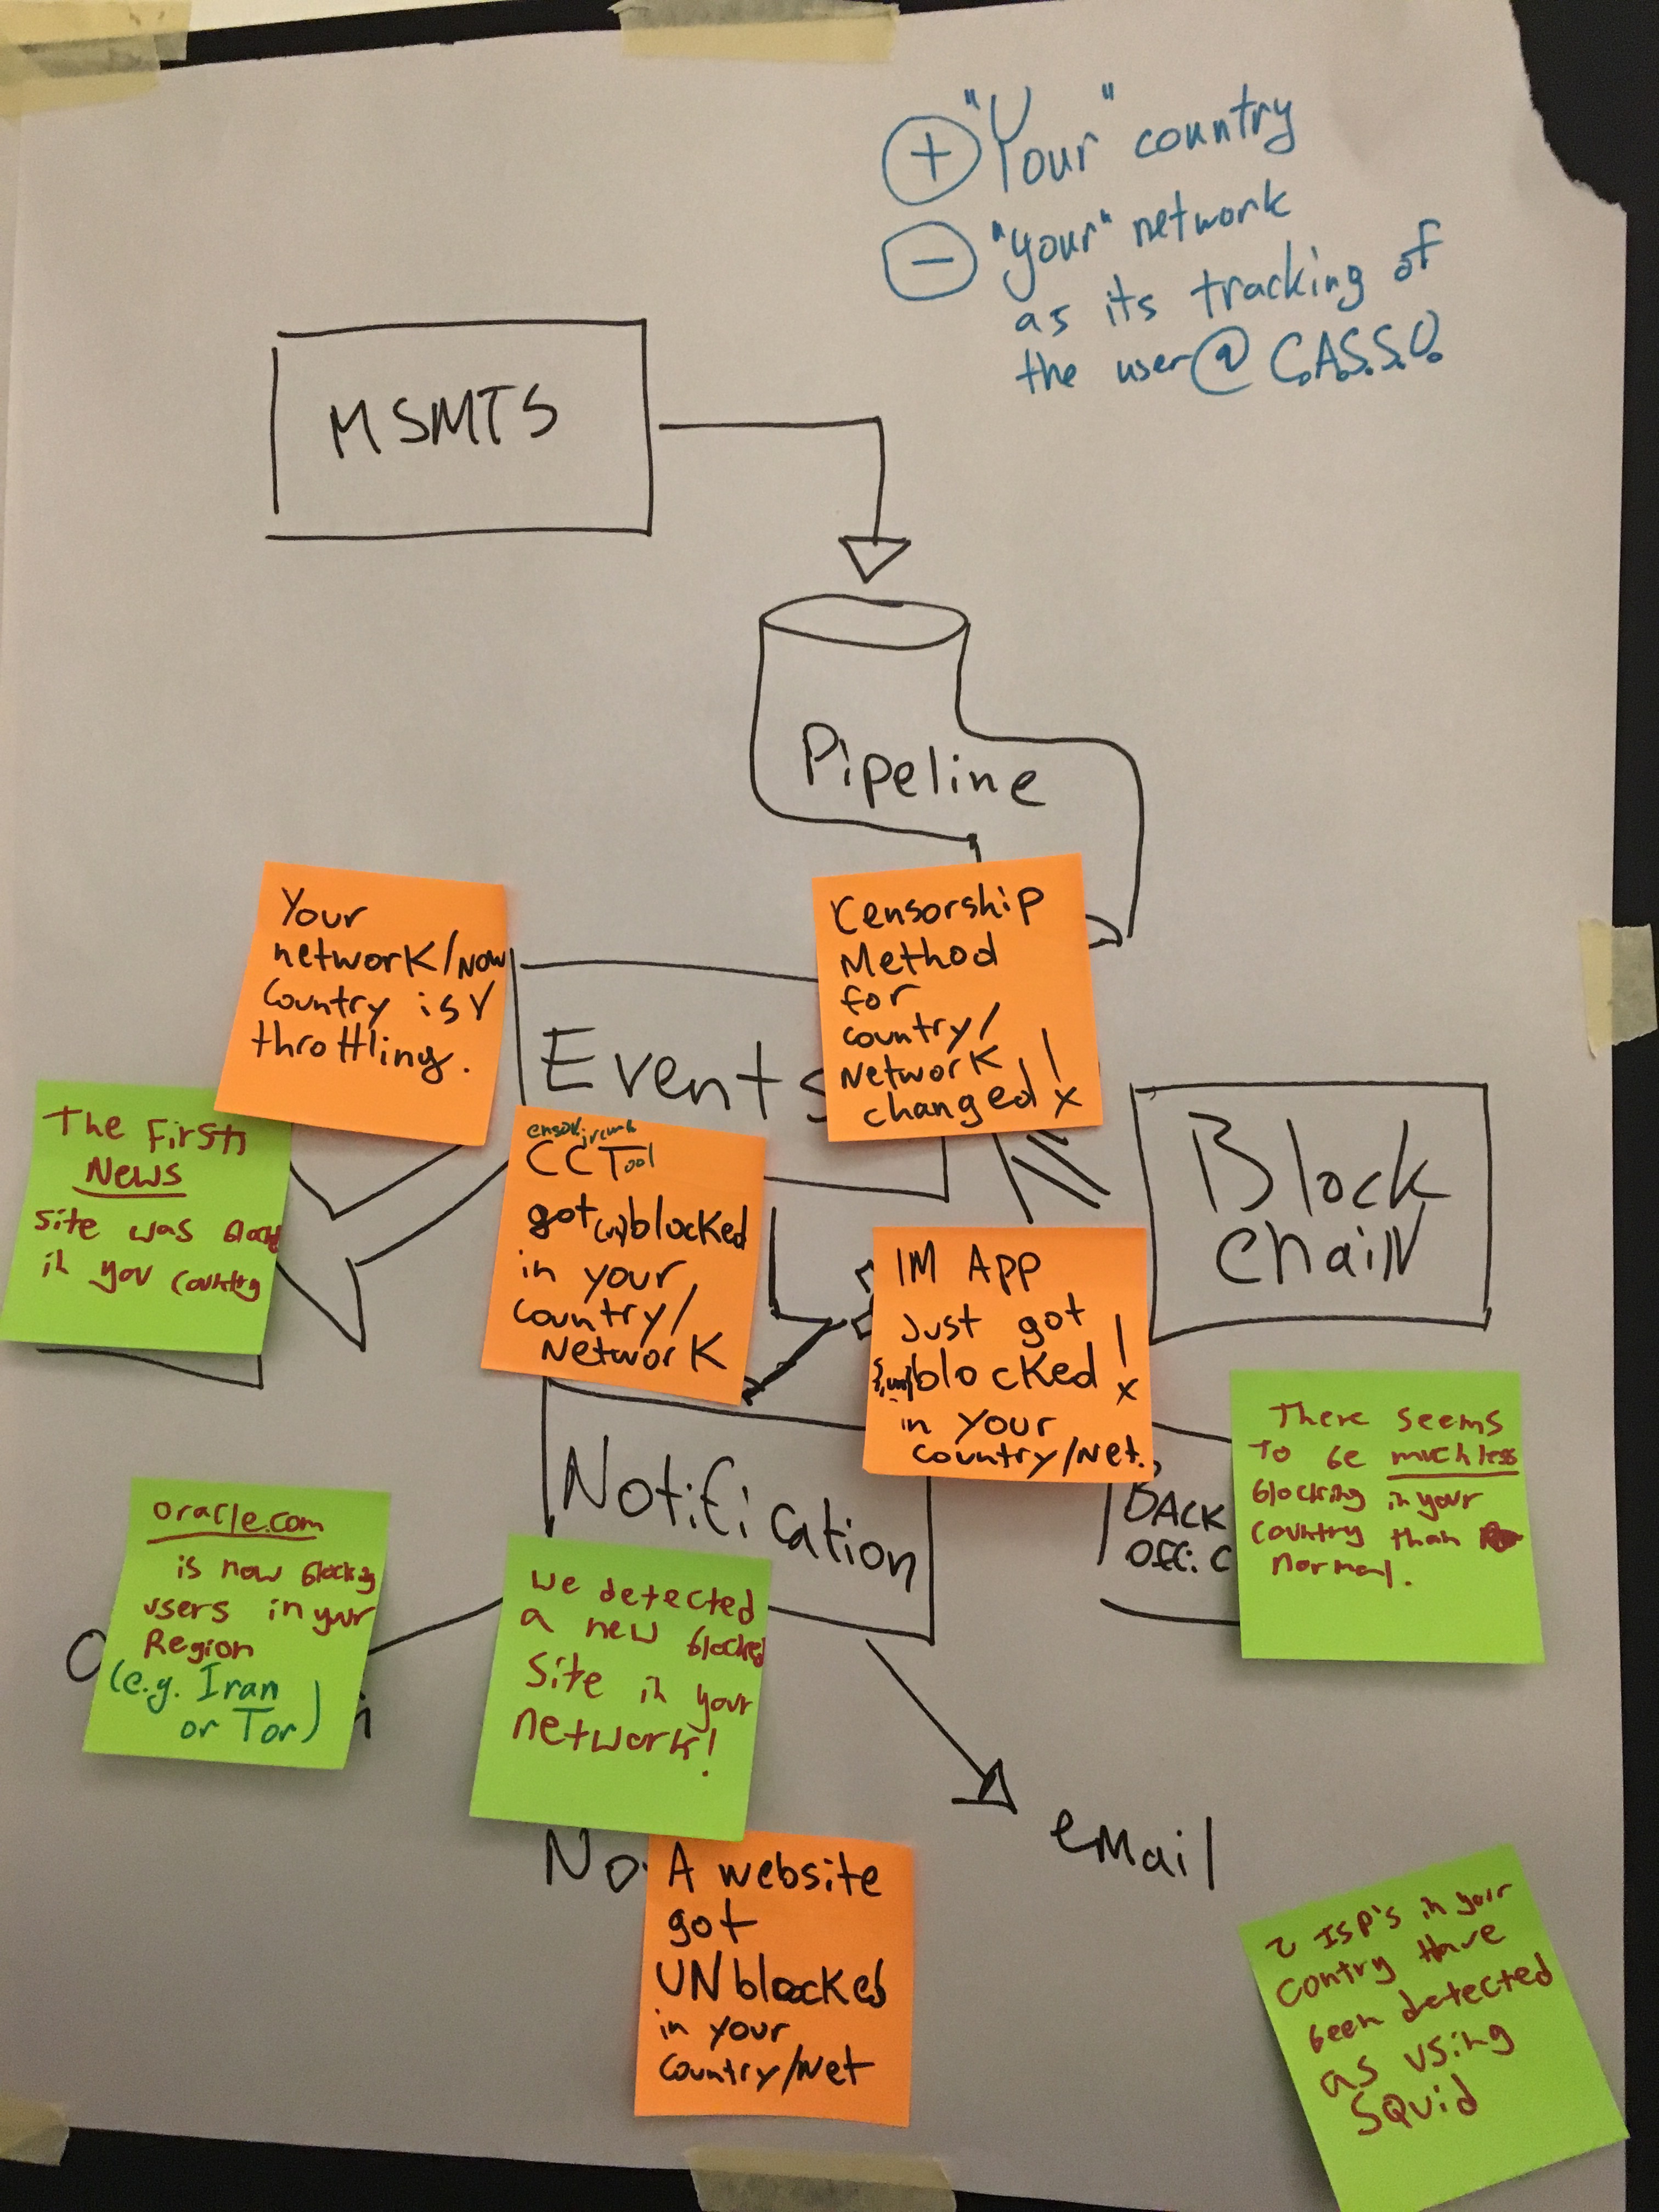 "Your" country
"your" network
as its tracking of
the user@ C.A.S.S.O.
MSMTS
Pipeline
Your
network/now
country is
throttling.
Censorship
Method
for
country/
Network
changed!
Events
The First
News
site was
in you country
CCTool
got (un)blocked
in your
country/
Network
Block
chain
IM App
Just got
{,un}blocked!
in your
country/Net.
Notification
BACK
Offic
There seems
To be much less
blocking in your
country than
normal.
oracle.com
is now blocking
users in your
Region
(e.g. Iran
or Tor)
we detected
a new blocked
Site in your
network!
email
No
A website
got
UNblocked
in your
country/Net
2 ISP's in your
contry Have
been detected
as using
SQuid